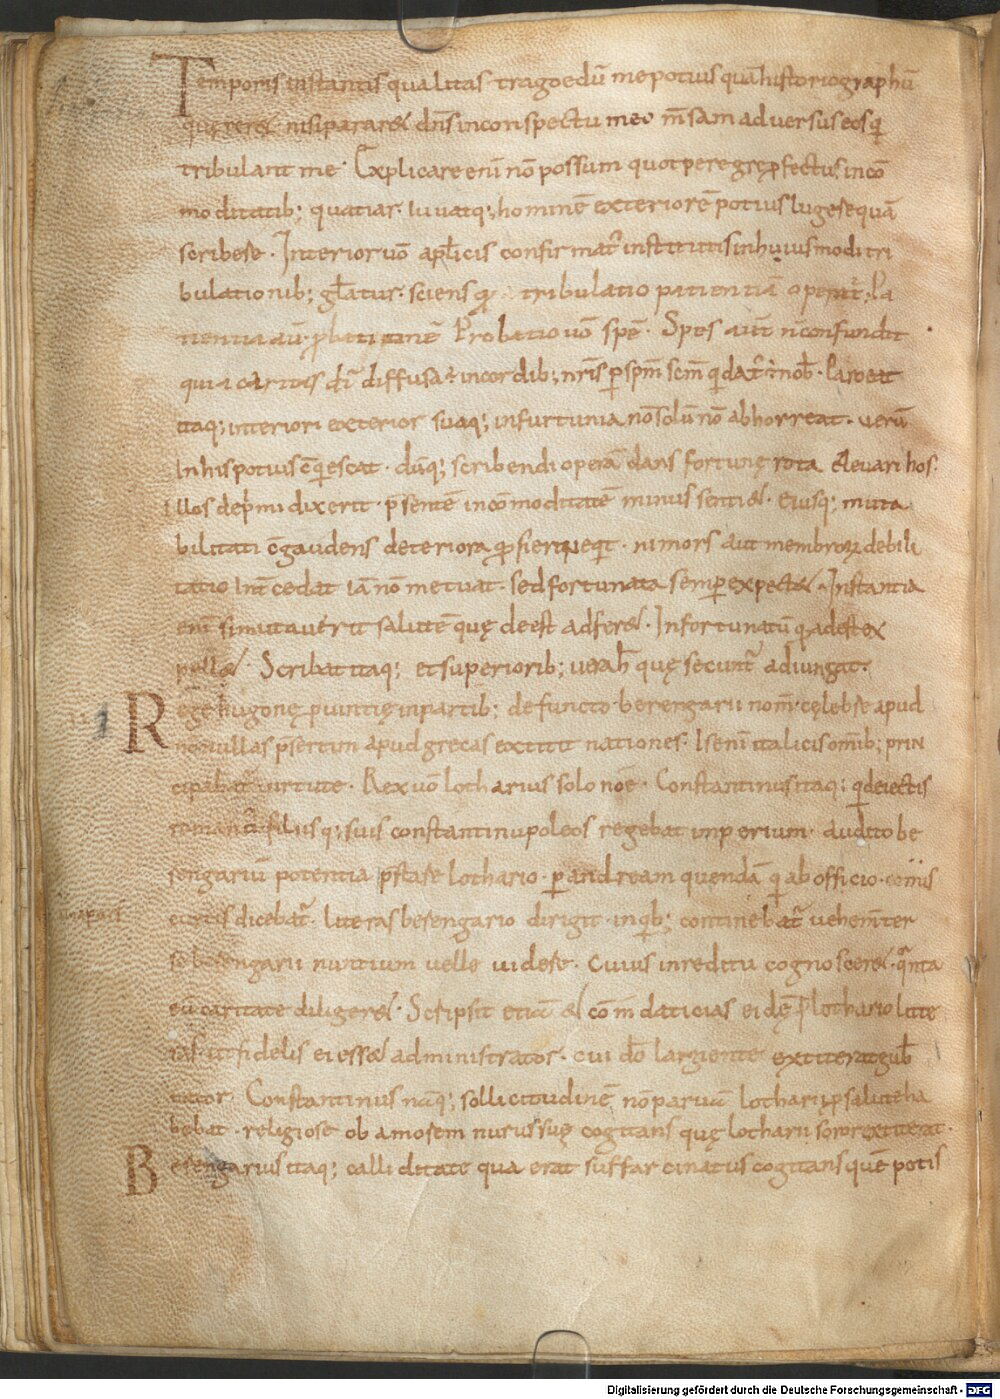 Temporis instantis qualitas tragoedū me potius quā historiographū
quęreret nisi pararet dn̄s in conspectu meo m̄sam adversus eos q̇
tribulant me· Explicare eni nō possum quot peregrę profectus incō
moditatib; quatiar· iuvatq; hominē exteriorē potius lugere quā
scribere· Interior vō ap̄licis confirmatr institutis in huiusmodi tri
bulationib; gl̄atur· sciens qd tribulatio patientiā operat̄· Pa
tientia aū· Probatio vō spē· Spes aut̄ n̄ confundit
quia caritas dī diffusa ÷ in cordib; nr̄is p̱ sp̄m sc̄m q̇ datꝰ ÷ nob̄· Pareat
itaq; interiori exterior suaq; infurtunia nō solū nō abhorreat· verū
in his potius cōquiescat· dūq; scribendi operā dans fortunę rota elevari hos
illos dep̄mi dixerit· p̄sentē incōmoditatē minus sentiet· Eiusq; muta
bilitati cōgaudens deteriora qd fieri nequit· ni mors aut membroꝝ debili
tatio int̄cedat iā nō metuat· sed fortunata semp̱ expectet· Instantia
eni si mutaverit salutē quę deest adferet· Infortunatū q adest ex
pellet· Scribat itaq; et superiorib; vera h̄ quę secunt̄ adiungat·
Rege hugone ꝓvintię in partib; defuncto· berengarii nom̄ cęlebre apud
nonullas p̄sertim apud grecas extitit nationes· Is eni italicis omib; prin
cipabatr̄ virtute· Rex vō lotharius solo nōe· Constantinus itaq; q deiectis
romano filiisq; suis constantinupoleos regebat imperium· audito be
rengariū potentia p̄stare lothario· p̱ andream quendā q ab officio· comis
curtis dicebatr̄· literas berengario dirigit· in qb; continebatr̄ vehem̄ter
se berengarii nuntium velle videre· Cuius in reditu cognosceret· q̄nta
eū caritate diligeret· Scripsit etiā et cōmdaticias eidē p̱ lothario lite
ras· ut fidelis ei esset administrator· cui dō largiente extiterat gub̄
nator· Constantinus naq; sollicitudinē nō parvā lotharii ꝓ salute ha
bebat· religiose ob amorem nurus suę cogitans quę lotharii soror extiterat·
Berengarius itaq; calliditate qua erat suffarcinatus cogitans quē potis
Digitalisierung gefördert durch die Deutsche Forschungsgemeinschaft - DFG